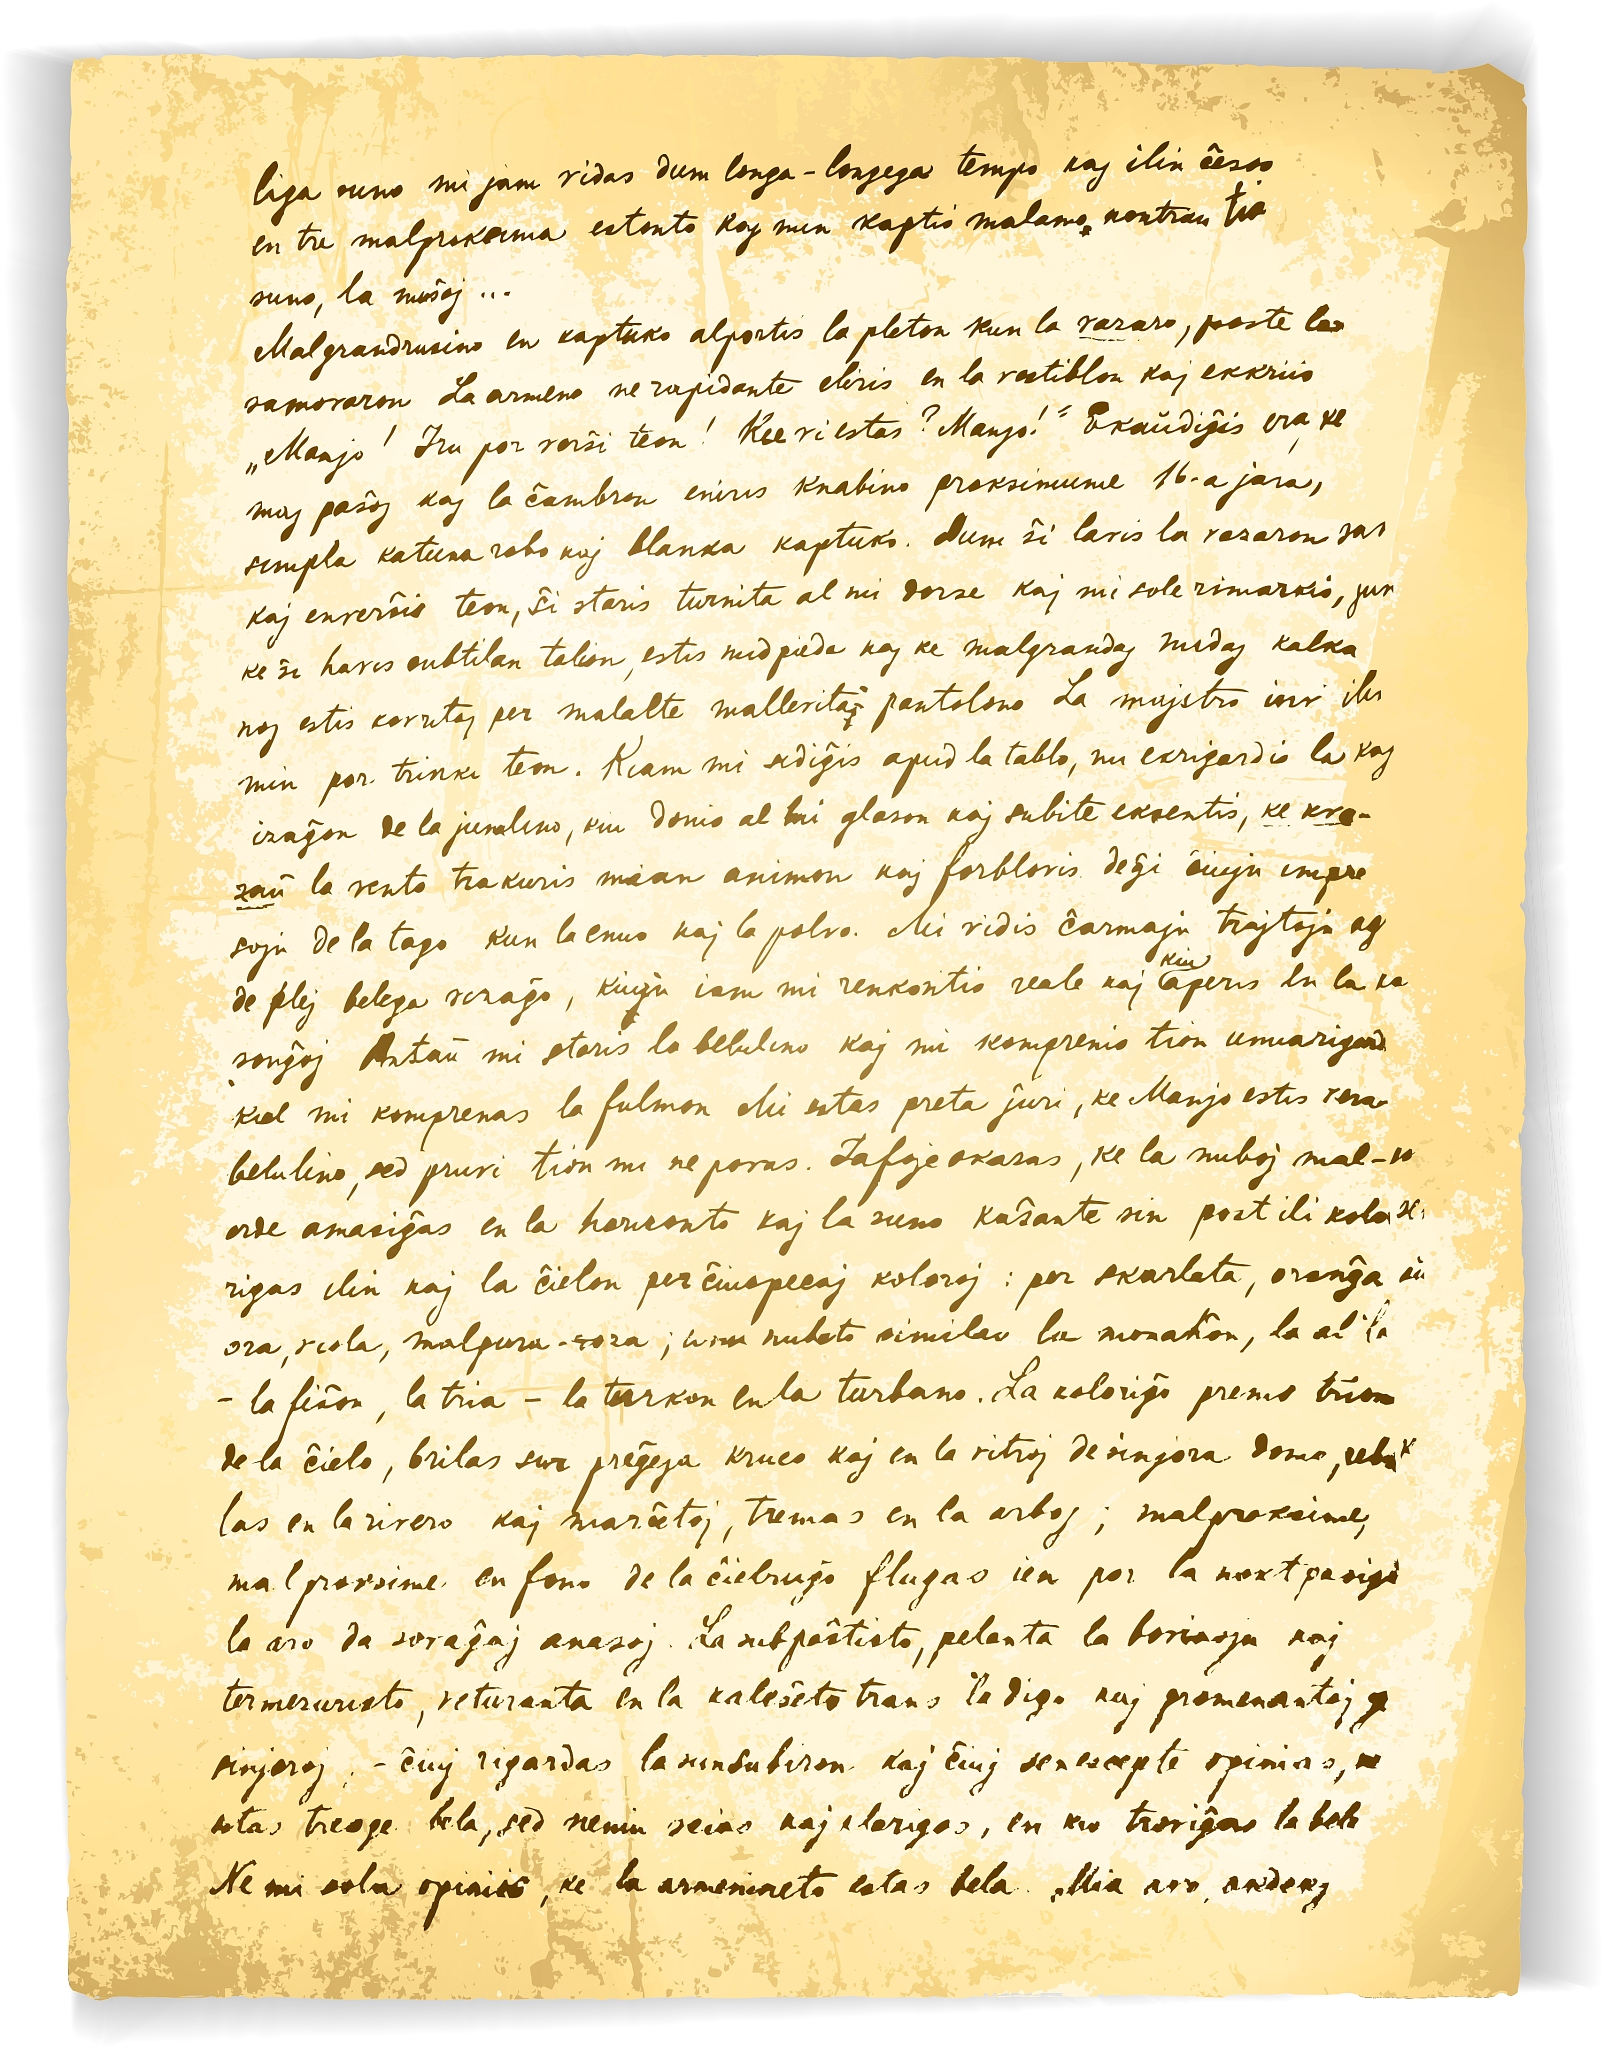 liga suno mi jam vidas dum longa-longega tempo kaj ilin ĉesos
en tre malproksima estonto kaj min kaptis malamo kontraŭ tia
suno, la muŝoj ...
Malgrandrusino en kaptuko alportis la pleton kun la vazaro, poste la
samovaron La armeno ne rapidante eliris en la vestiblon kaj ekkriis
„Manjo! Iru por verŝi teon! Kie vi estas? Manjo!" Ekaŭdiĝis
maj paŝoj kaj la ĉambron eniris knabino proksimume 16-a jara,
simpla katuna robo kaj blanka kaptuko. Dum ŝi lavis la vazaron
kaj enverŝis teon, ŝi staris turnita al mi dorse kaj mi sole rimarkis,
ke ŝi havis subtilan talion, estis nudpieda kaj ke malgrandaj nudaj kalka
noj estis kovritaj per malalte mallevitaj pantolono La majstro
min por trinki teon. Kiam mi sidiĝis apud la tablo, mi ekrigardis la
izaĝon de la junulino, kiu donis al mi glason kaj subite eksentis, ke kva-
zaŭ la vento trakuris mian animon kaj forblovis deĝi ĉiujn impre
sojn de la tago kun la enuo kaj la polvo. Mi vidis ĉarmajn trajtojn
de plej belega vizaĝo, kiujn iam mi renkontis reale kaj kiu aperis en la
sonĝoj Antaŭ mi staris la belulino kaj mi komprenis tion unuarigard
kiel mi komprenas la fulmon Mi estas preta ĵuri, ke Manjo estis vera
belulino, sed pruvi tion mi ne povas. Iafoje okazas, ke la nuboj mal-
orde amasiĝas en la horizonto kaj la suno kaŝante sin post ili kolo
rigas ilin kaj la ĉielon per ĉiuspecaj koloroj: per skarlata, oranĝa
ora, viola, malpura-roza; unu nubeto similas la monaĥon, la al la
- la fiŝon, la tria - la turkon en la turbano. La koloriĝo premis trion
de la ĉielo, brilas sur preĝeja kruco kaj en la vitroj de sinjora domo,
las en la rivero kaj marĉetoj, tremas en la arboj; malproksime,
malproksime en fono de la ĉielruĝo flugas ien por la noktpasigi
la aro da sovaĝaj anasoj. La subpaŝtisto, pelanta la bovinojn kaj
termezuristo, veturanta en la kaleŝeto trans la digo kaj promenantaj
sinjoroj, - ĉiuj rigardas la sunsubiron kaj ĉiuj senescepte opinias,
estas treege bela, sed neniu scias kaj klarigas, en kio troviĝas la bele
Ne mi sola opiniis, ke la armenineto estas bela. Mia avo,